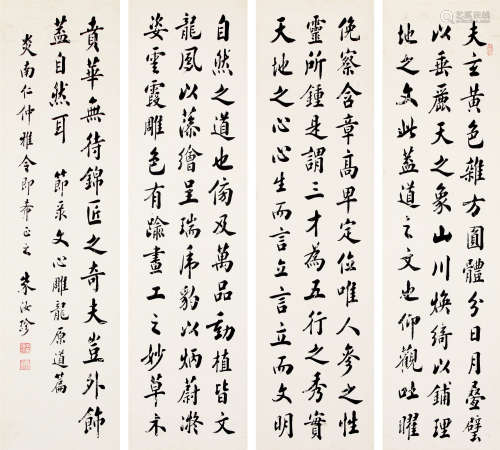 夫玄黃色雜方圓體分日月疊璧
以垂麗天之象山川煥綺以鋪理
地之文此蓋道之文也仰觀吐曜
俛察含章高卑定位唯人參之性
靈所鍾是謂三才為五行之秀實
天地之心心生而言立言立而文明
自然之道也傍及萬品動植皆文
龍鳳以藻繪呈瑞虎豹以炳蔚凝
姿雲霞雕色有踰畫工之妙草木
賁華無待錦匠之奇夫豈外飾
蓋自然耳 節彔文心雕龍原道篇
炎南仁仲雅令即希正之 朱汝珍